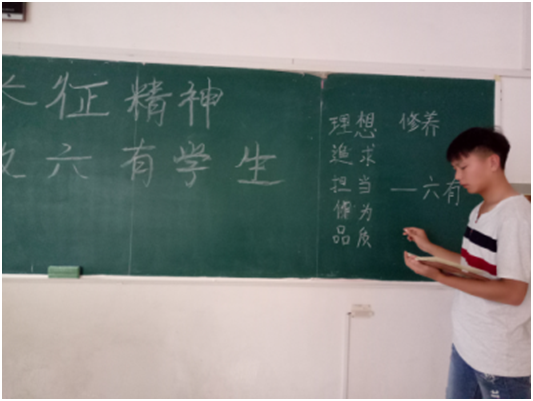 长征精神
六有学生
理想
追求
担当
为
品质
修养
—六有